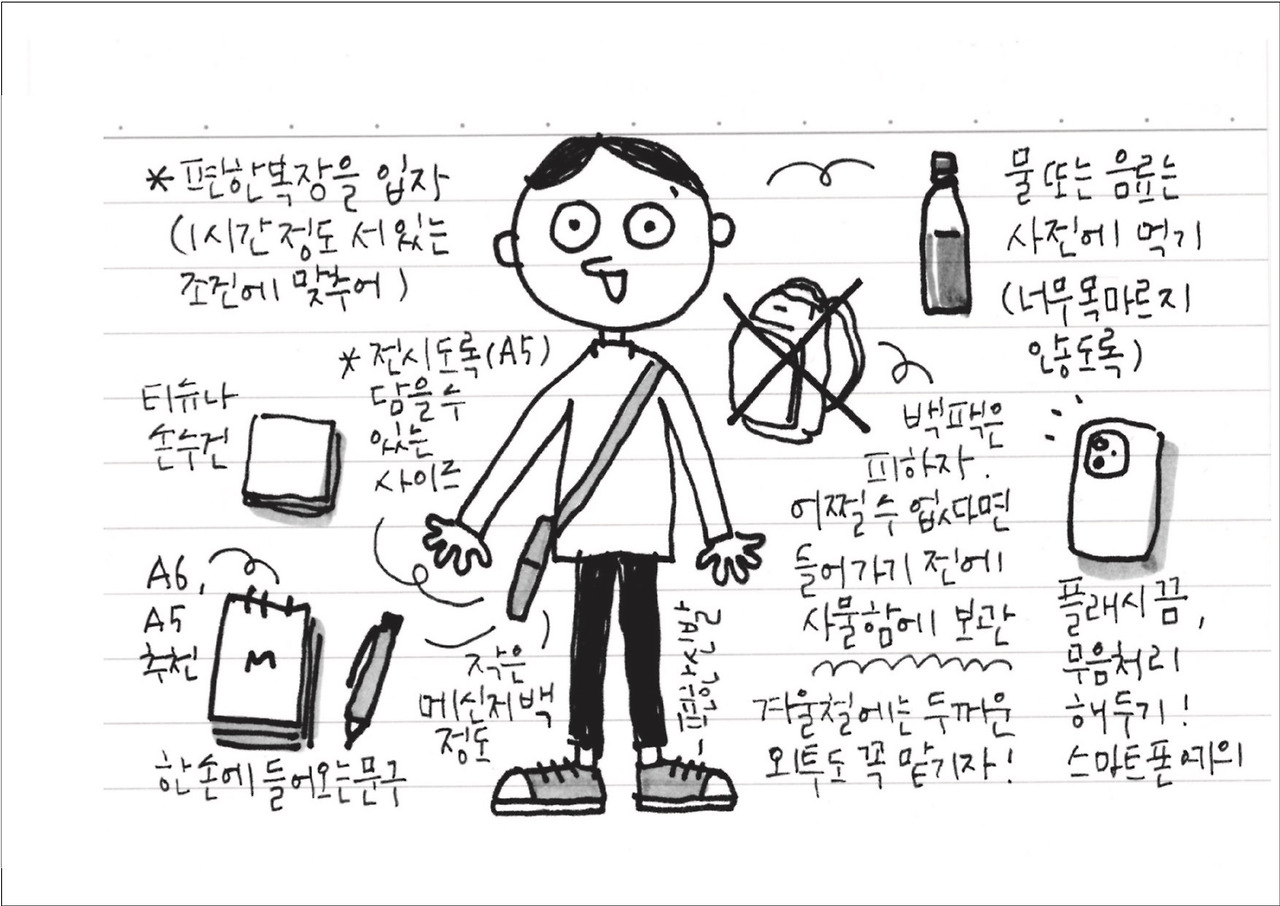 * 편한 복장을 입자
(1시간 정도 서 있는
조건에 맞추어)
* 전시도록(A5)
담을 수
있는
사이즈
티슈나
손수건
A6,
A5
추천
M
한 손에 들어오는 문구
작은
메신저백
정도
물 또는 음료는
사전에 먹기
(너무 목마르지
않도록)
백팩은
피하자.
어쩔 수 없다면
들어가기 전에
사물함에 보관
겨울철에는 두꺼운
외투도 꼭 맡기자!
플래시 끔,
무음처리
해두기!
스마트폰 예의